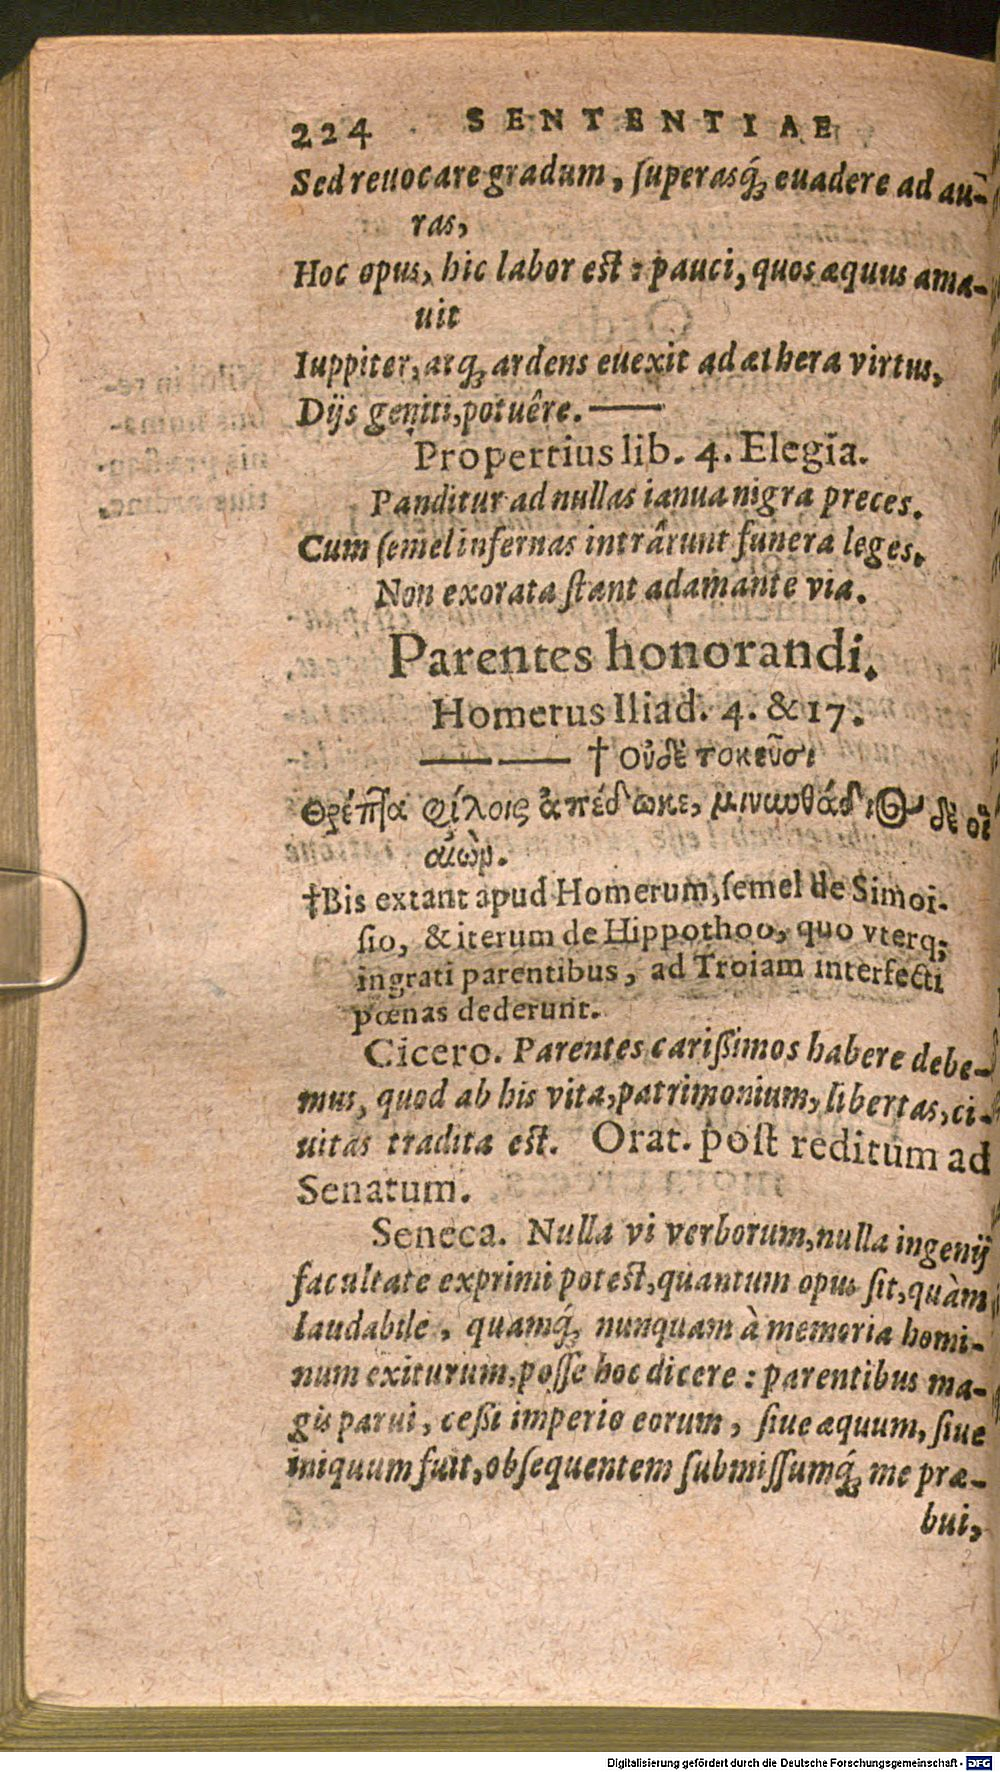 224 SENTENTIAE
Sed reuocare gradum, ſuperasq́; euadere ad au-
ras,
Hoc opus, hic labor est: pauci, quos æquus ama-
uit
Iuppiter, atq; ardens euexit ad æthera virtus,
Dijs geniti, potuêre. ——
Propertius lib. 4. Elegia.
Panditur ad nullas ianua nigra preces.
Cum ſemel infernas intrârunt funera leges,
Non exorata ſtant adamante via.
Parentes honorandi.
Homerus Iliad. 4. & 17.
—— —— † οὐδὲ τοκεῦσι
Θρέπτρα φίλοις ἀπέδωκε, μινυνθάδιος δέ οἱ
αἰὼν.
†Bis extant apud Homerum, ſemel de Simoi-
ſio, & iterum de Hippothoo, quo vterq;
ingrati parentibus, ad Troiam interfecti
pœnas dederunt.
Cicero. Parentes cariſſimos habere debe-
mus, quod ab his vita, patrimonium, libertas, ci-
uitas tradita est. Orat. poſt reditum ad
Senatum.
Seneca. Nulla vi verborum, nulla ingenij
facultate exprimi potest, quantum opus ſit, quàm
laudabile, quamq́; nunquam à memoria homi-
num exiturum, poſſe hoc dicere: parentibus ma-
gis parui, ceſſi imperio eorum, ſiue æquum, ſiue
iniquum fuit, obſequentem ſubmiſſumq́; me præ-
bui,
Digitalisierung gefördert durch die Deutsche Forschungsgemeinschaft - DFG